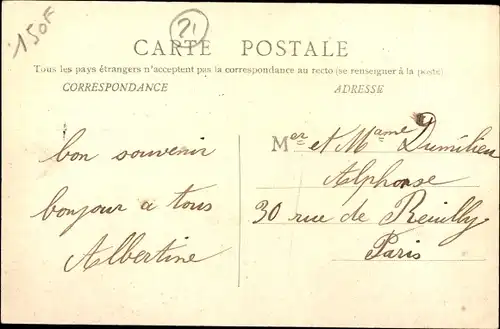 150F
21
CARTE POSTALE
Tous les pays étrangers n'acceptent pas la correspondance au recto (se renseigner à la poste)
CORRESPONDANCE
ADRESSE
bon souvenir
bonjour a tous
Albertine
Mer et Mame Dumilieu
Alphonse
30 rue de Reuilly
Paris